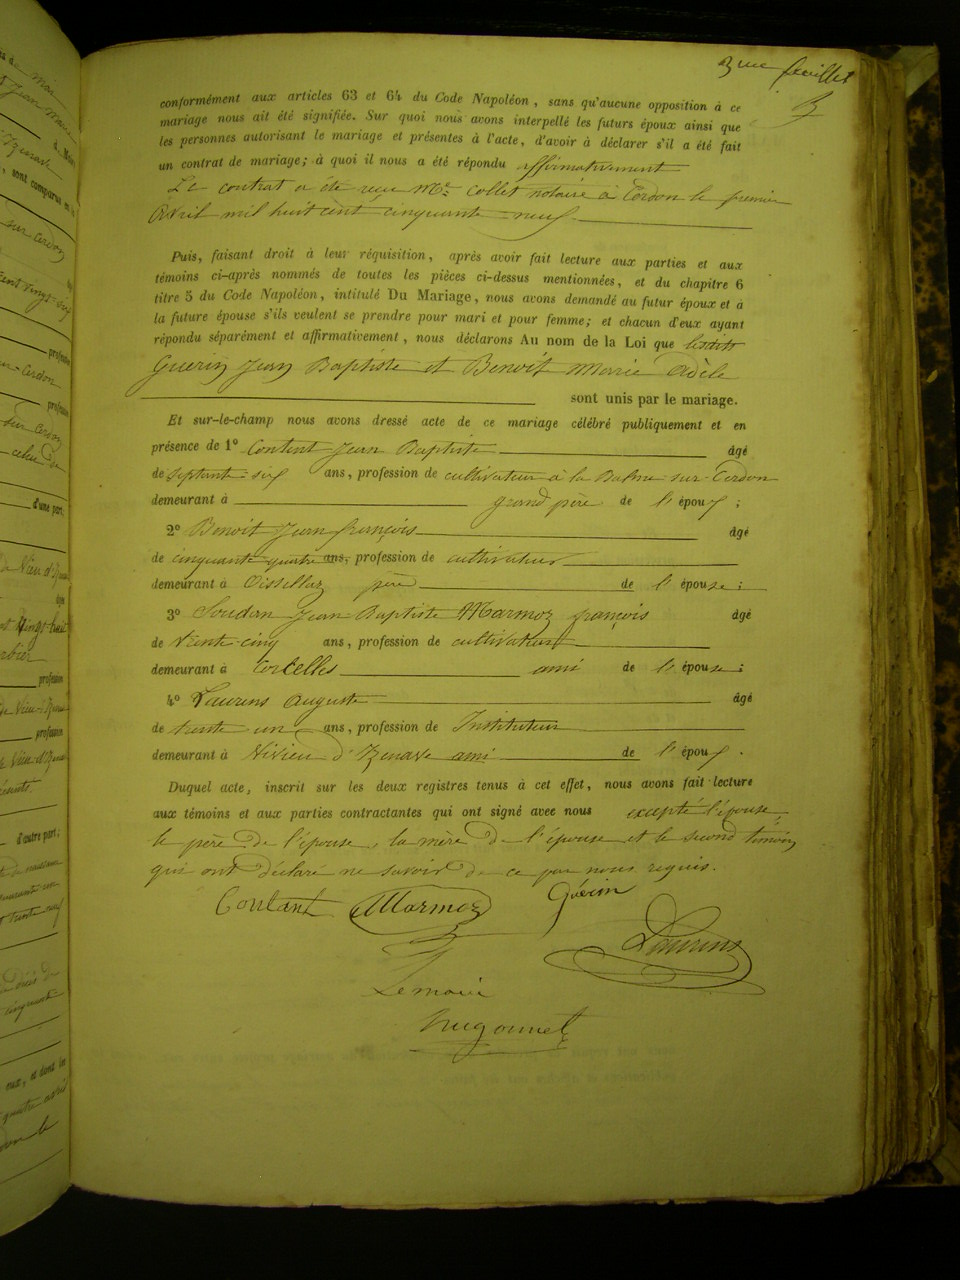 3me feuillet
3
conformément aux articles 63 et 64 du Code Napoléon, sans qu'aucune opposition à ce
mariage nous ait été signifiée. Sur quoi nous avons interpellé les futurs époux ainsi que
les personnes autorisant le mariage et présentes à l'acte, d'avoir à déclarer s'il a été fait
un contrat de mariage; à quoi il nous a été répondu affirmativement
Le contrat a été reçu Me collet notaire à Cerdon le premier
Avril mil huit cent cinquante neuf.
Puis, faisant droit à leur réquisition, après avoir fait lecture aux parties et aux
témoins ci-après nommés de toutes les pièces ci-dessus mentionnées, et du chapitre 6
titre 5 du Code Napoléon, intitulé Du Mariage, nous avons demandé au futur époux et à
la future épouse s'ils veulent se prendre pour mari et pour femme; et chacun d'eux ayant
répondu séparément et affirmativement, nous déclarons Au nom de la Loi que lesdits
Guerin Jean Baptiste et Benoit Marie Adèle
sont unis par le mariage.
Et sur-le-champ nous avons dressé acte de ce mariage célébré publiquement et en
présence de 1° Contant Jean Baptiste âgé
de septante six ans, profession de cultivateur à la Balme sur Cerdon
demeurant à grand père de l'époux;
2° Benoit Jean françois âgé
de cinquante quatre ans, profession de cultivateur
demeurant à père de l'épouse;
3° Soudan Jean Baptiste Marmoz françois âgé
de vente cinq ans, profession de cultivateur
demeurant à Corcelles ami de l'épouse;
4° Laurens Auguste âgé
de trente un ans, profession de Instituteur
demeurant à Vivieu d'Izenave ami de l'époux.
Duquel acte, inscrit sur les deux registres tenus à cet effet, nous avons fait lecture
aux témoins et aux parties contractantes qui ont signé avec nous excepté l'épouse,
le père de l'épouse, la mère de l'épouse et le second témoin
qui ont déclaré ne savoir de ce par nous requis.
Contant Marmoz Guérin
Laurens
Le maire
Hugonnet